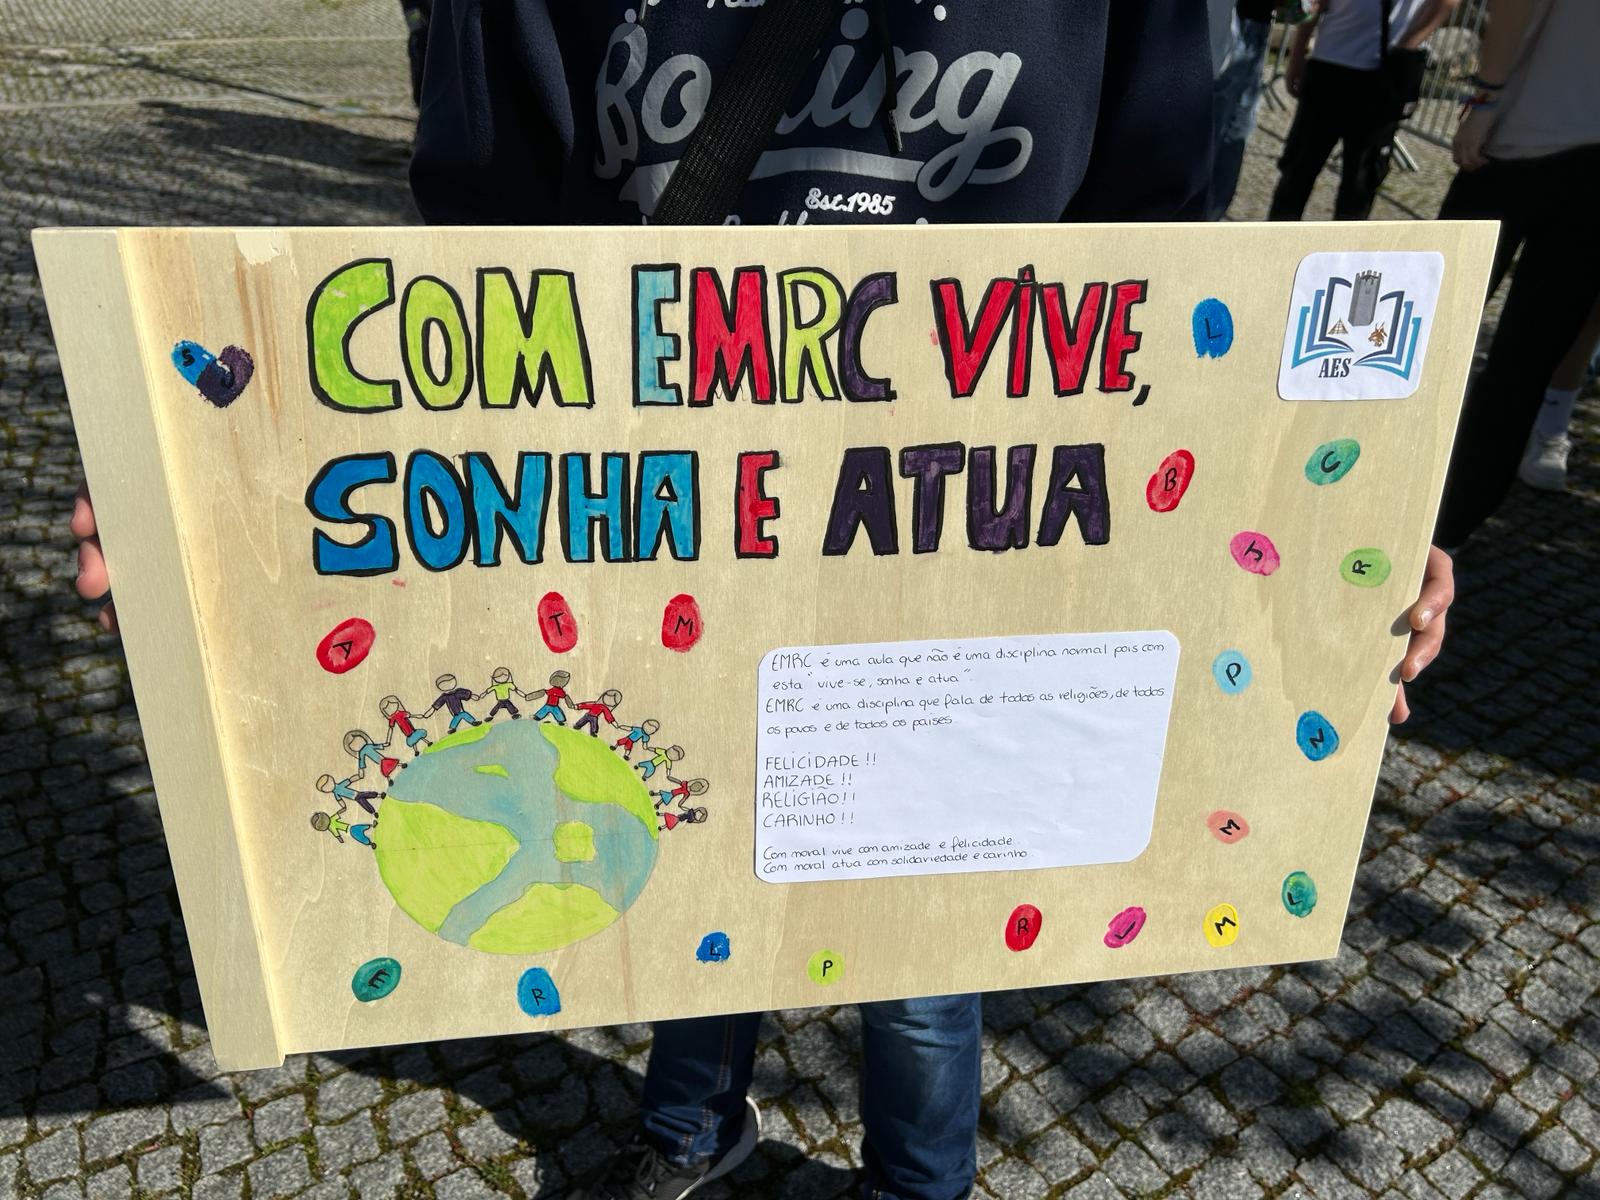 Boxing
Est.1985
COM EMRC VIVE,
SONHA E ATUA
AES
S
L
B
C
J
R
A
T
M
P
N
M
L
EMRC é uma aula que não é uma disciplina normal pois com
esta "vive-se, sonha e atua".
EMRC é uma disciplina que fala de todas as religiões, de todos
os povos e de todos os países.
FELICIDADE !!
AMIZADE !!
RELIGIÃO!!
CARINHO !!
Com moral vive com amizade e felicidade.
Com moral atua com solidariedade e carinho.
R
L
M
E
R
L
P